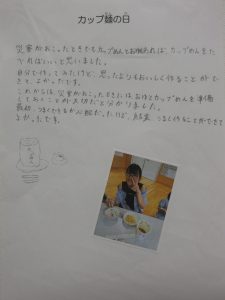 カップ麺の日
災害がおこったときでもカップめんとお湯があれば、カップめんを
作ればいいと思いました。
自分で作ってみたけど、思ったよりもおいしく作ることができ
て、よかったです。
これからは、災害がおこったときには、お湯とカップめんを準備
しておくことが大切だと分かりました。
最初、つくれるか心配だったけど、結果、つくることができて
よかったです。